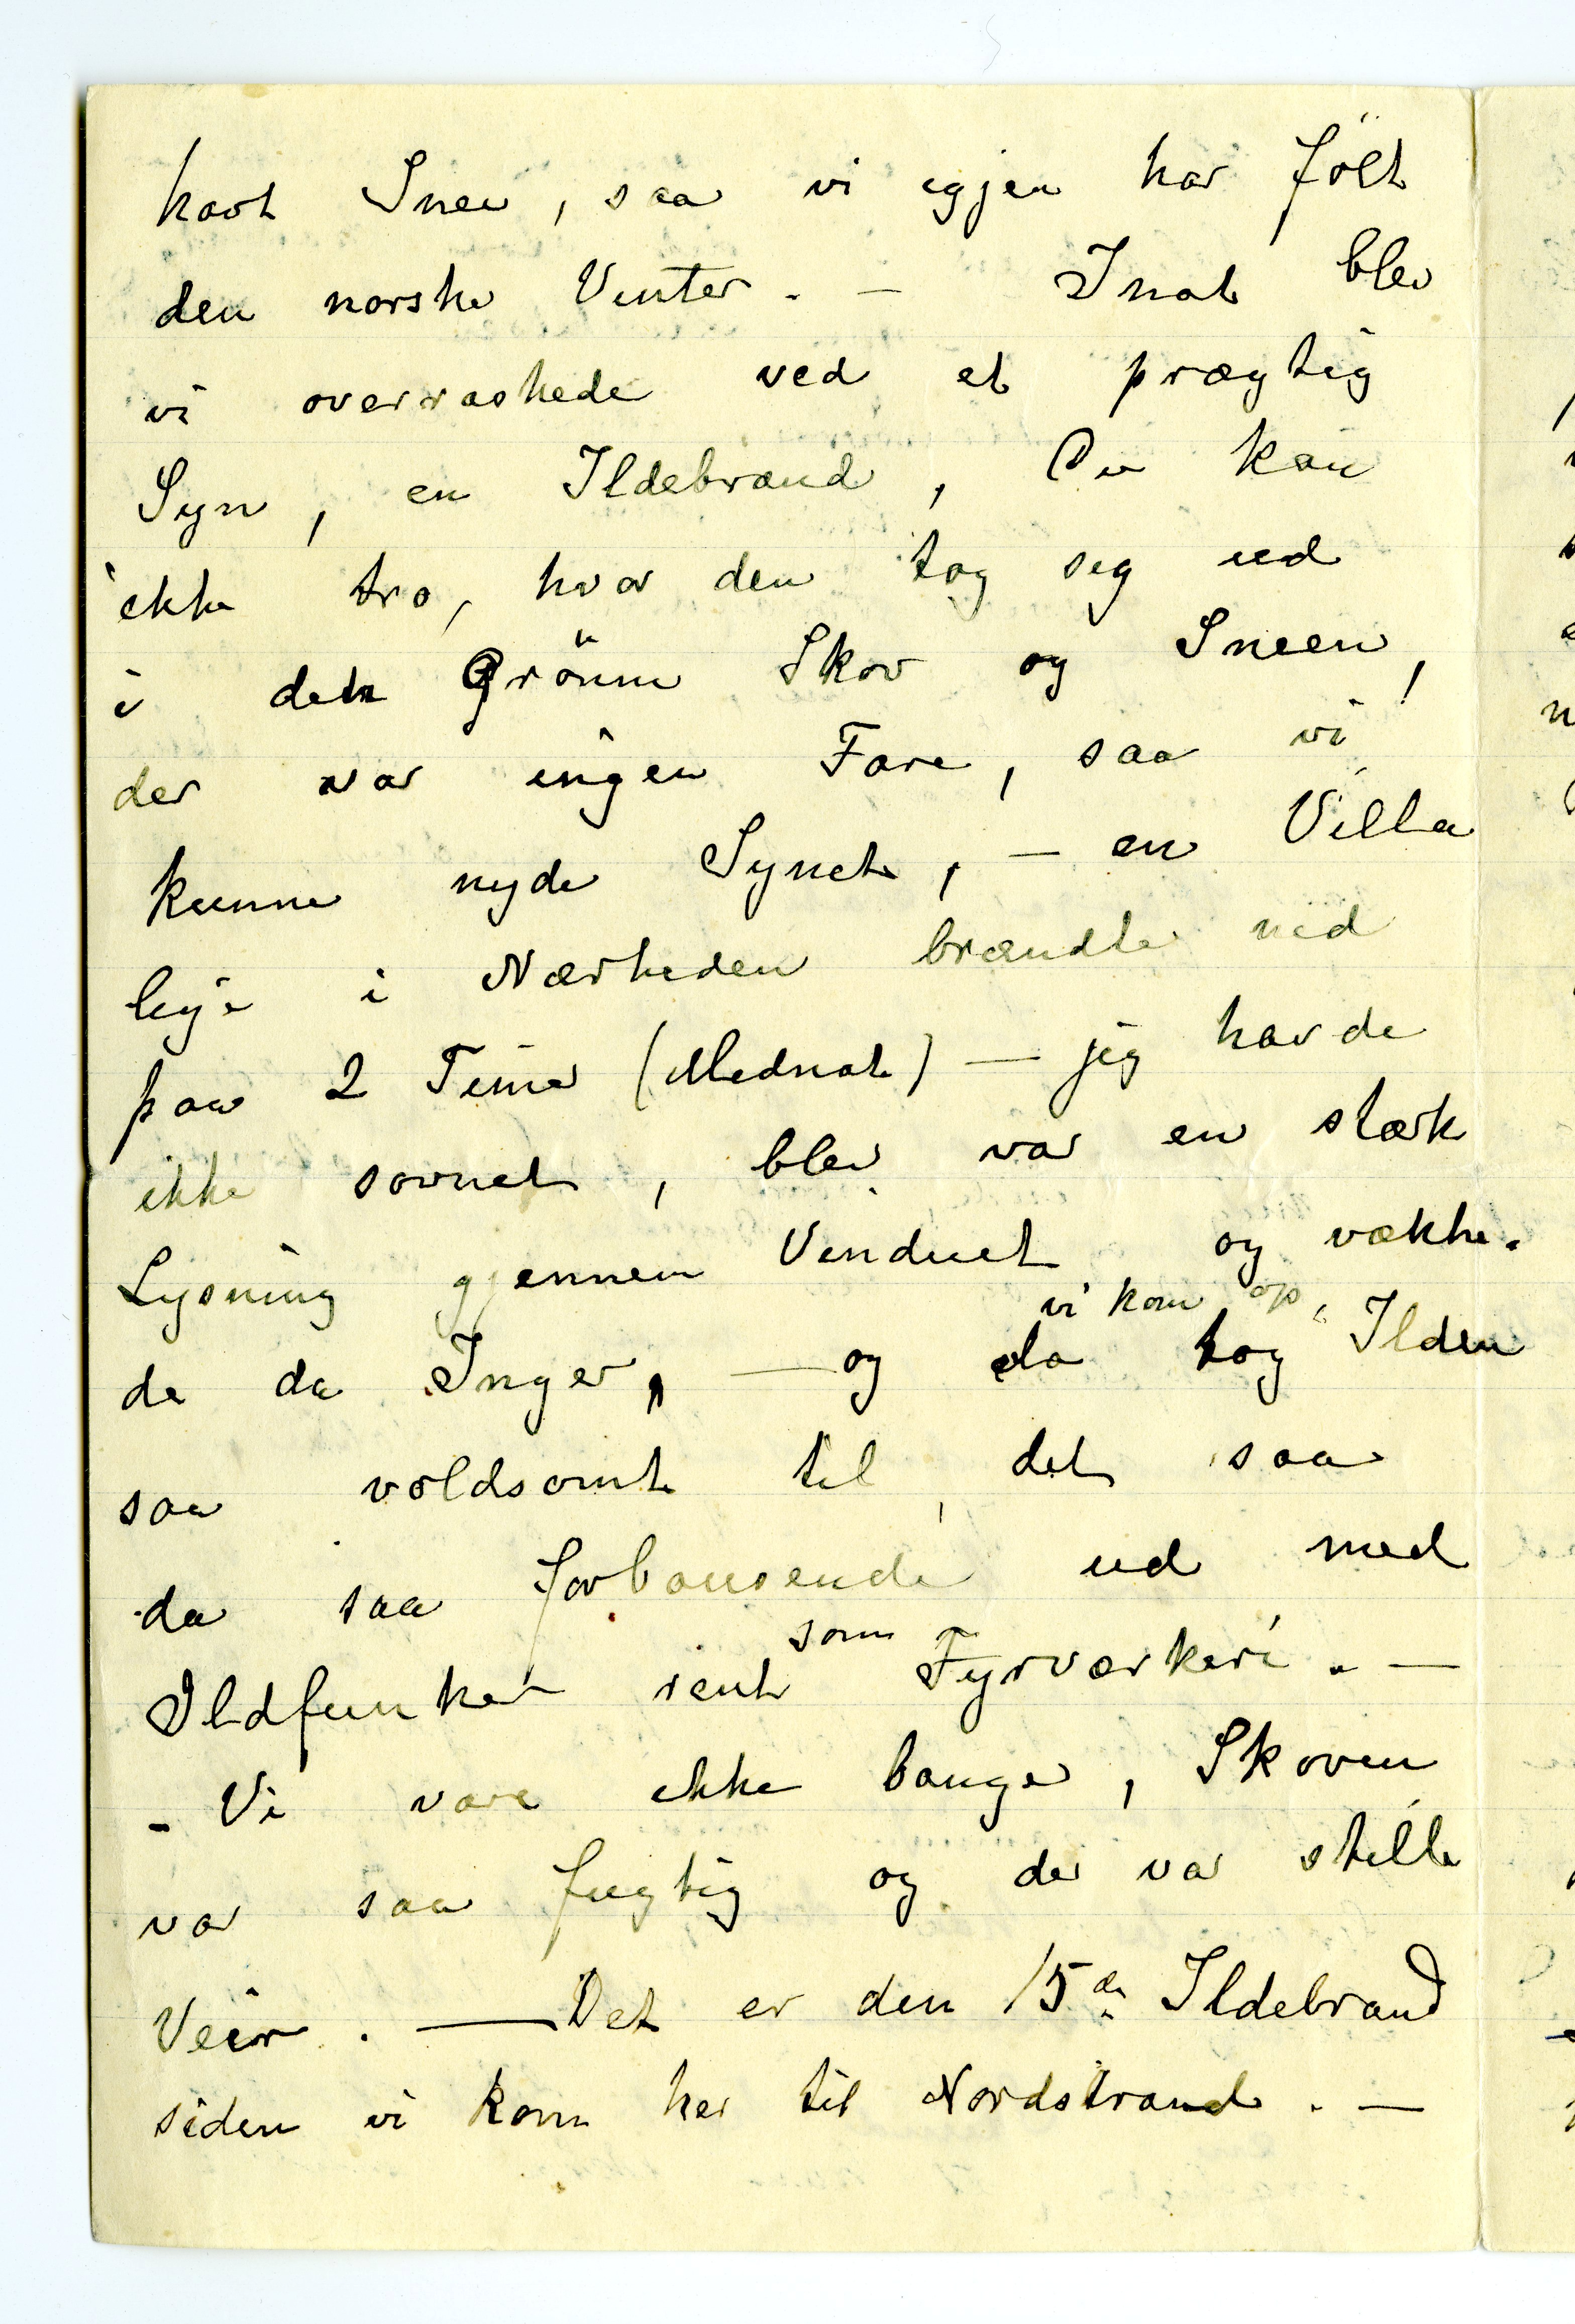 havt Snee, saa vi igjen har følt
den norske Vinter. — Inat blev
vi overraskede ved et prægtig
Syn, en Ildebrand, Du kan
ikke tro, hvor den tog sig ud
i den Grönne Skov og Sneen,
der var ingen Fare, saa vi
kunne nyde Synet, — en Villa
lige i Nærheden brændte ned
paa 2 Timer (Midnat) — jeg havde
ikke sovnet, blev var en stærk
Lysning gjennem Vinduet og vække-
vi kom op,
de da Inger, — og da tog Ilden
saa voldsomt til, det saa
da saa forbausende ud med
som
Ildfunker rent Fyrværkeri. —
- Vi vare ikke bange, Skoven
var saa fugtig og der var stille
Veir. — Det er den 15de Ildebrand
siden vi kom her til Nordstrand. —